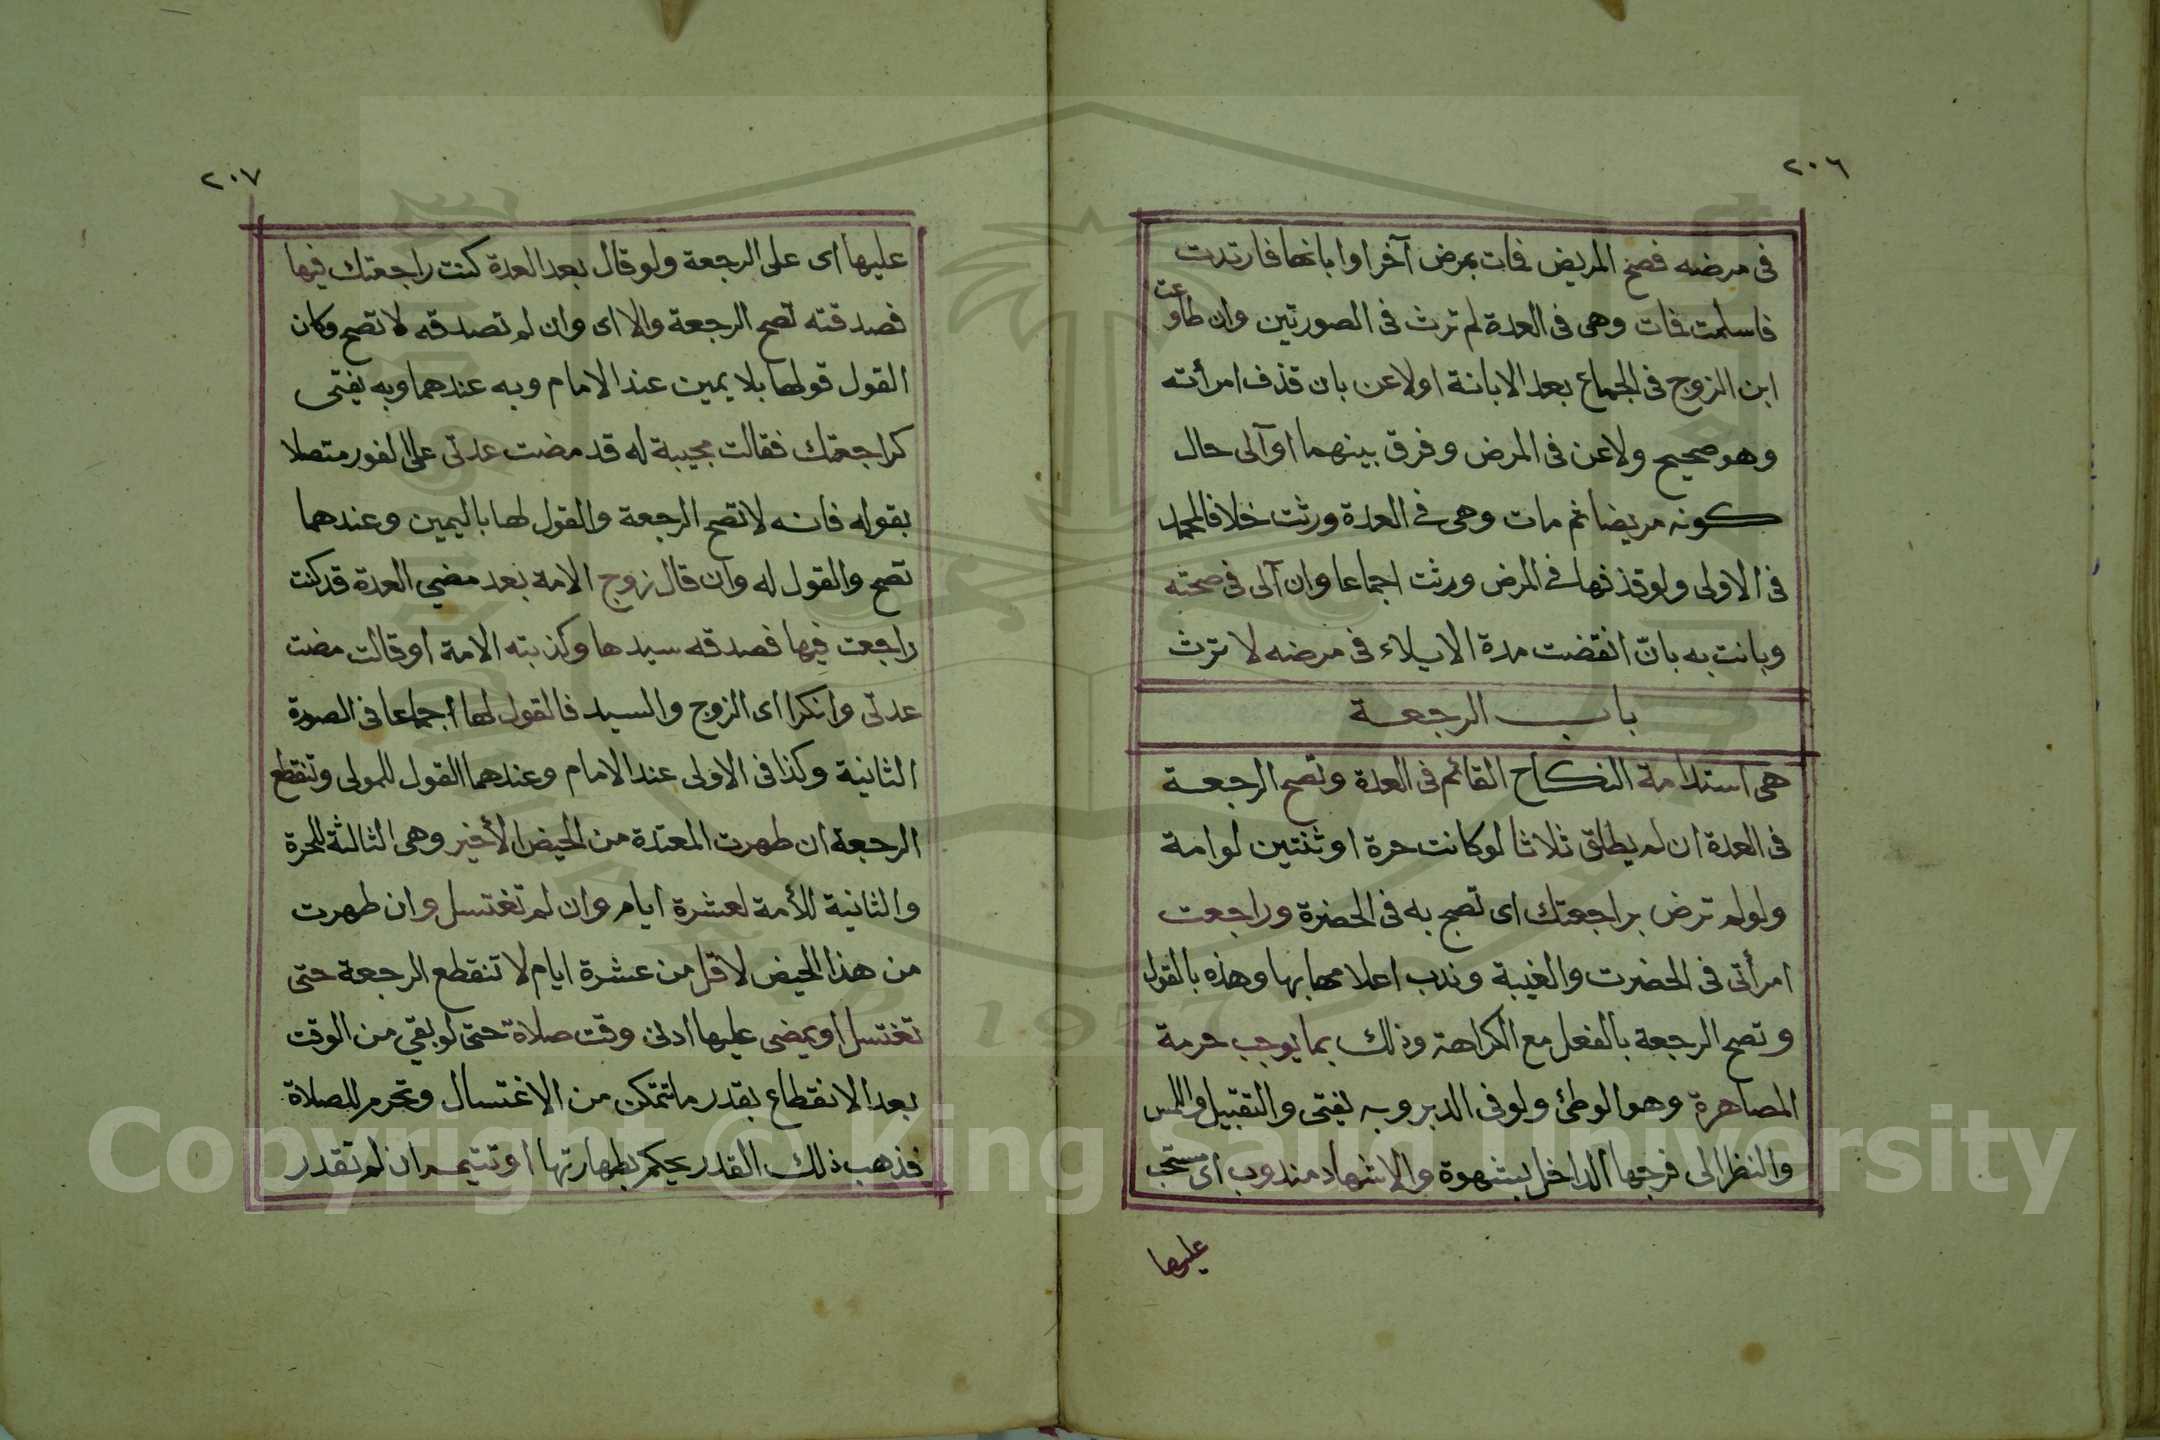 ٢٠٦
فى مرضه فصح المريض فمات بمرض آخر او ابانها فارتدت
فاسلمت فمات وهى فى العدة لم ترث فى الصورتين وان طاوعت
ابن الزوج فى الجماع بعد الابانة اولاعن بان قذف امرأته
وهو صحيح ولاعن فى المرض وفرق بينهما او آلى حال
كونه مريضا ثم مات وهى فى العدة ورثت خلافا لمحمد
فى الاولى ولو قذفها فى المرض ورثت اجماعا وان آلى فى صحته
وبانت به بان انقضت مدة الايلاء فى مرضه لا ترث
باب الرجعة
هى استدامة النكاح القائم فى العدة وتصح الرجعة
فى العدة ان لم يطلق ثلاثا لو كانت حرة او ثنتين لو امة
ولو لم ترض براجعتك اى تصح به فى الحضرة وراجعت
امرأتى فى الحضرت والغيبة وندب اعلامها بها وهذه بالقول
وتصح الرجعة بالفعل مع الكراهة وذلك بما يوجب حرمة
المصاهرة وهو الوطئ ولو فى الدبر وبه يفتى والتقبيل واللمس
والنظر الى فرجها الداخل بشهوة والاشهاد مندوب اى مستحب
عليها
٢٠٧
عليها اى على الرجعة ولو قال بعد العدة كنت راجعتك فيها
فصدقته تصح الرجعة والا اى وان لم تصدقه لا تصح وكان
القول قولها بلا يمين عند الامام وبه عندهما وبه يفتى
كراجعتك فقالت مجيبة له قد مضت عدتى على الفور متصلا
بقوله فانه لا تصح الرجعة والقول لها باليمين وعندهما
تصح والقول له وان قال زوج الامة بعد مضي العدة قد كنت
راجعت فيها فصدقه سيدها وكذبته الامة او قالت مضت
عدتى وانكرا اى الزوج والسيد فالقول لها اجماعا فى الصورة
الثانية وكذا فى الاولى عند الامام وعندهما القول للمولى وتنقطع
الرجعة ان طهرت المعتدة من الحيض الأخير وهى الثالثة للحرة
والثانية للأمة لعشرة ايام وان لم تغتسل وان طهرت
من هذا الحيض لاقل من عشرة ايام لا تنقطع الرجعة حتى
تغتسل او يمضى عليها ادنى وقت صلاة حتى لو بقي من الوقت
بعد الانقطاع بقدر ما تتمكن من الاغتسال وتحرم للصلاة
فذهب ذلك القدر يحكم بطهارتها او تتيمم ان لم تقدر
1957
Copyright © King Saud University